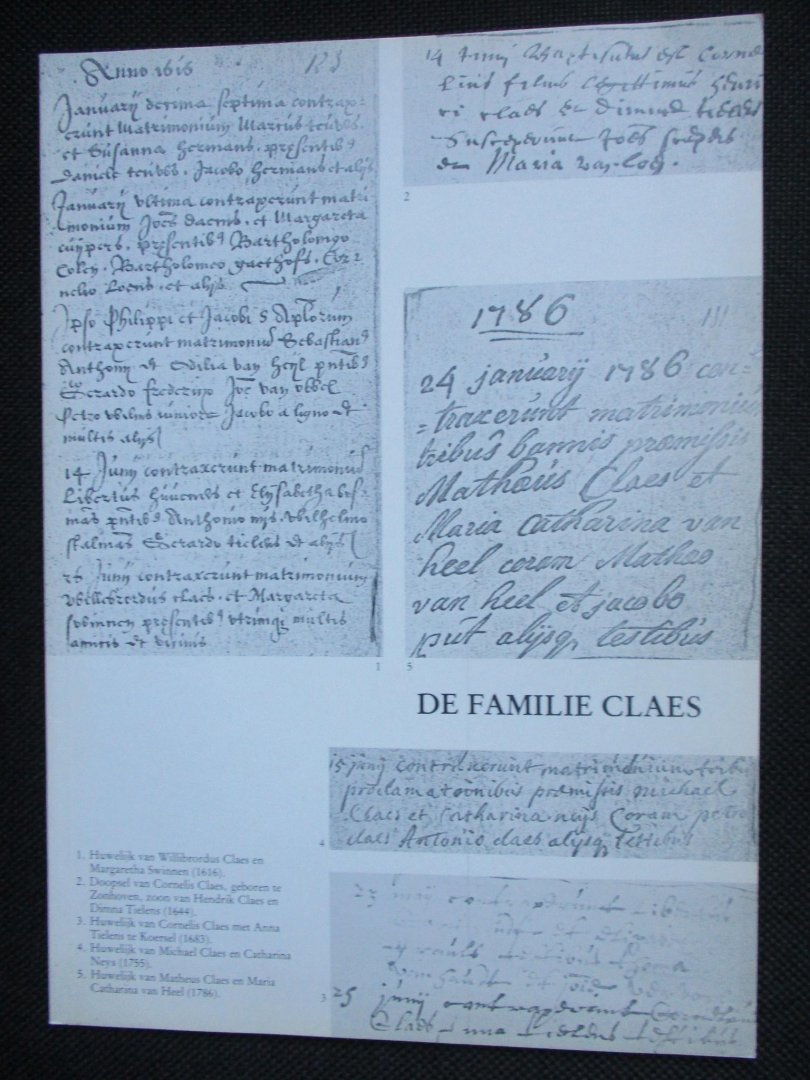 Anno 1616
123
Januarij decima septima contrax-
erunt Matrimonium Marcus teuves
et Susanna Hermans. presentibs
Daniele teuves. Jacobo Hermans et alijs
Januarij ultima contraxerunt matri
monium Joes Daems. et Margareta
cuypers. presentibs Bartholomeo
Coley. Bartholomeo gaethofs. Cor
nelio Loens. et alijs
Ipso Philippi et Jacobi S Aplorum
contraxerunt matrimoniu Sebastians
Anthonij et Odilia van Heyl pntibs
Gerardo frederix Joe van
Petro iuniore Jacobo a ligno et
multis alijs
14 Junij contraxerunt matrimoniu
Libertus et Elysabetha
pntibs Anthonio nijs. Wilhelmo
Gerardo et alijs
26 Junij contraxerunt matrimonium
Willebrordus claes. et Margareta
swinnen presentibs utrimqz multis
amicis et vicinis
1
14 Junij Baptisatus est Corne
lius filius legittimus Henri
ci claes et Dimna tielens
Susceperunt Joes
et Maria van.
2
1786
111
24 januarij 1786 con-
=traxerunt matrimoniu
tribus bannis præmissis
Mathæus Claes et
Maria Catharina van
heel coram Mathæo
van heel et jacobo
put alijsq, testibus
5
DE FAMILIE CLAES
15 junij contraxerunt matrimonium tribus
proclamationibus præmissis michael
Claes et Catharina neijs Coram petro
claes Antonio claes alijsq Testibus
4
1. Huwelijk van Willibrordus Claes en
Margaretha Swinnen (1616).
2. Doopsel van Cornelis Claes, geboren te
Zonhoven, zoon van Hendrik Claes en
Dimna Tielens (1644).
3. Huwelijk van Cornelis Claes met Anna
Tielens te Koersel (1683).
4. Huwelijk van Michael Claes en Catharina
Neys (1755).
5. Huwelijk van Matheus Claes en Maria
Catharina van Heel (1786).
23 contraxerunt
25 junij contraxerunt Cornelius
Claes Anna Tielens testibus
3